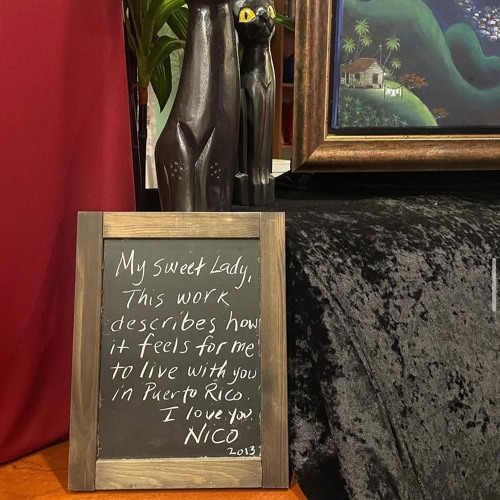 My sweet Lady,
This work
describes how
it feels for me
to live with you
in Puerto Rico.
I love you.
NICO
2013